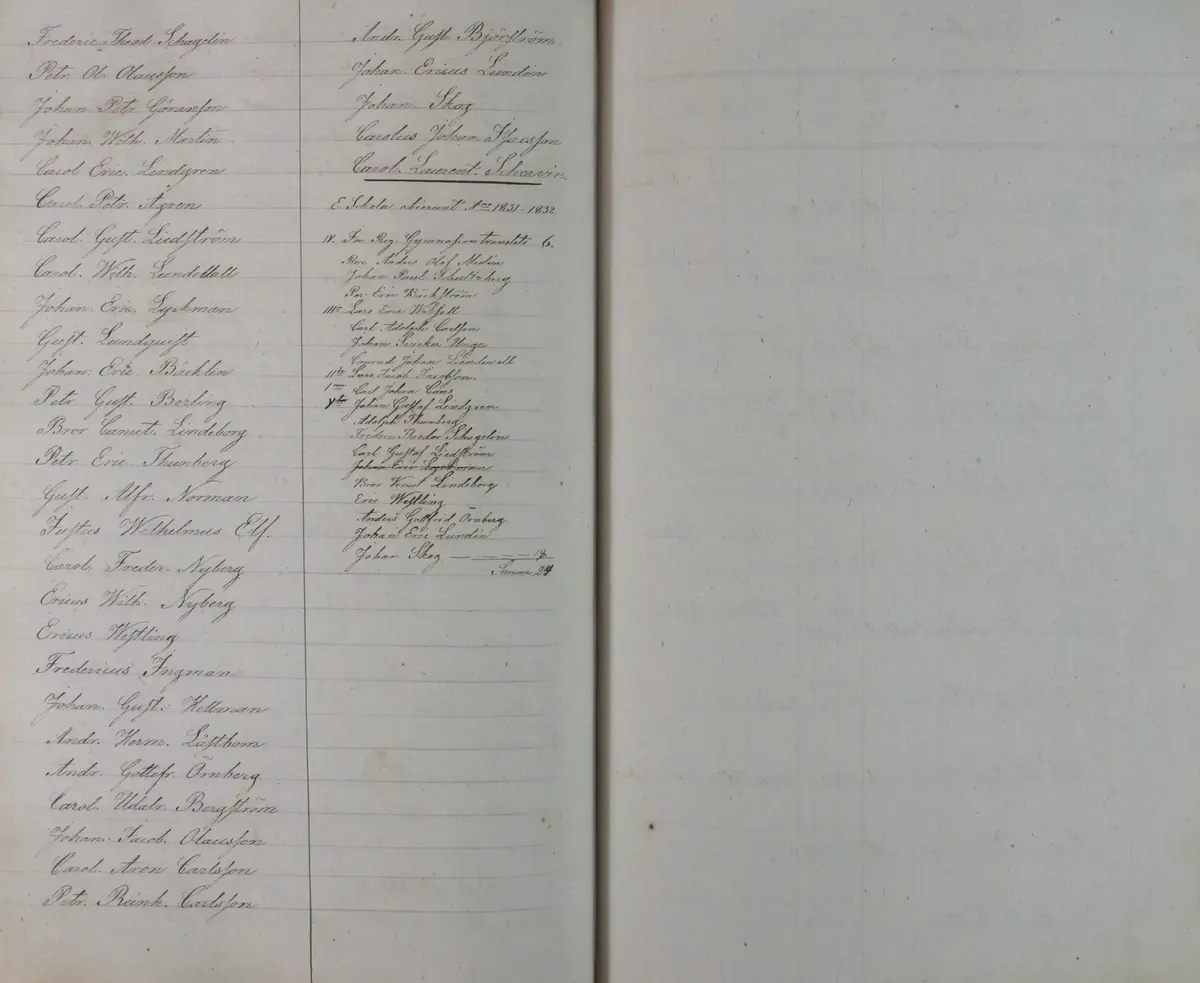 Frederic Theod. Schagelin
Petr. Ol. Olausson
Johan Petr Göransson
Johan. Wilh. Martin
Carol Eric. Lindgren
Carol. Petr. Ågren
Carol. Gust. Liedström
Carol. Wilh. Lundewall
Johan. Eric. Lyckman
Gust. Lundquist
Johan. Eric. Bücklin
Petr Gust. Berling
Bror Canut. Lindeborg
Petr. Eric. Thunberg
Gust. Alfr. Norman
Justus Wilhelmus Elf.
Carol. Freder. Nyberg
Ericus Wilh. Nyberg
Ericus Westling
Fredericus Ingman
Johan. Gust. Hellman
Andr. Herm. Låstbom
Andr. Gottefr. Örnberg
Carol. Udalr. Bergström
Johan. Jacob. Olausson
Carol. Aron Carlsson
Petr. Reinh. Carlsson
Andr. Gust. Björström
Johan. Ericus Lundin
Johan. Skog
Carolus Johan
Carol. Laurent.
E Schola abierunt A:no 1831-1832
IV. Reg. Gymnasium 6.
Anders Olof Medin
Johan Paul Schultzberg
Per Eric Bäckström
III: Lars Eric
Carl Adolph Carlson
Johan Unge
Conrad Johan
II: Lars Jacob Jacobson.
I: Carl Johan
Johan Gustaf Lindgren
Adolph Thunberg
Frederic Theodor Schagelin
Carl Gustaf Liedström
Johan Eric Lyckman
Bror Knut Lindeborg
Eric Westling
Anders Gottfrid Örnberg
Johan Eric Lundin
Johan Skog — — — — 18
Summa 24